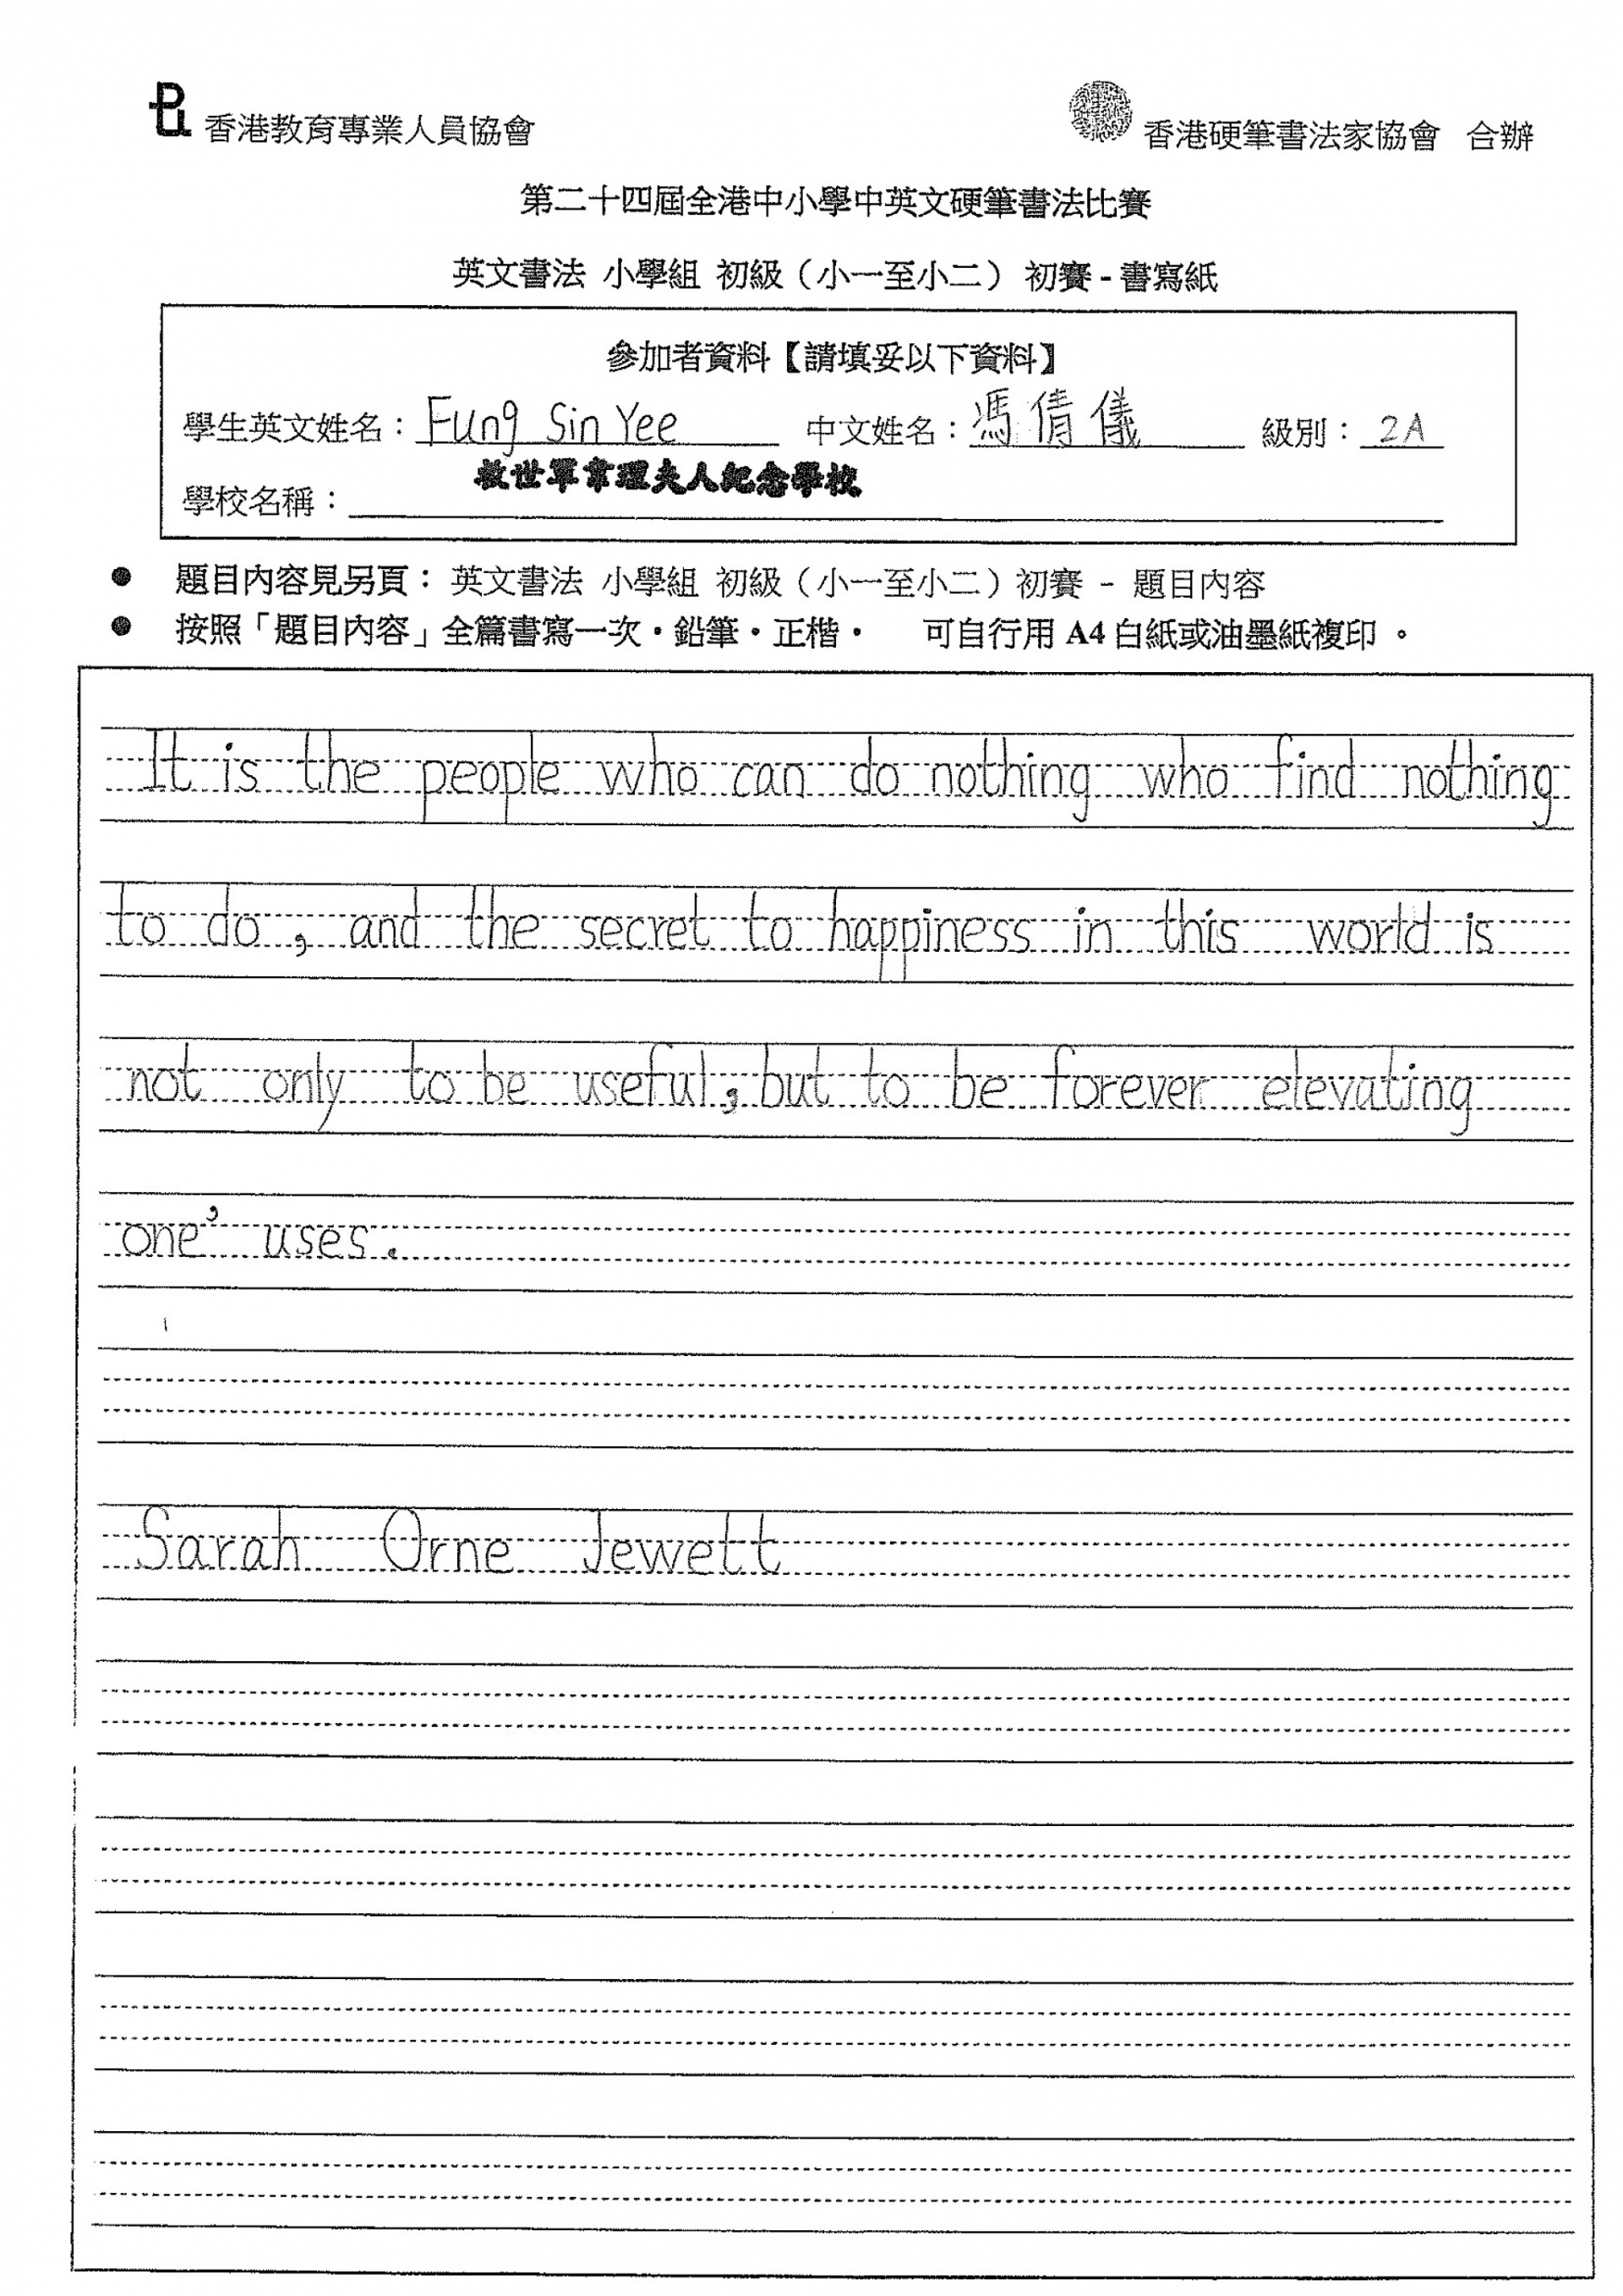 香港教育專業人員協會
香港硬筆書法家協會 合辦
第二十四屆全港中小學中英文硬筆書法比賽
英文書法 小學組 初級（小一至小二） 初賽 - 書寫紙
參加者資料【請填妥以下資料】
學生英文姓名： Fung Sin Yee 中文姓名： 馮倩儀 級別： 2A
學校名稱： 救世軍韋理夫人紀念學校
● 題目內容見另頁： 英文書法 小學組 初級（小一至小二）初賽 - 題目內容
● 按照「題目內容」全篇書寫一次・鉛筆・正楷・ 可自行用 A4 白紙或油墨紙複印 。
It is the people who can do nothing who find nothing
to do, and the secret to happiness in this world is
not only to be useful, but to be forever elevating
one' uses.
Sarah Orne Jewett